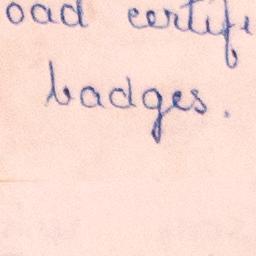 oad certifi
badges.